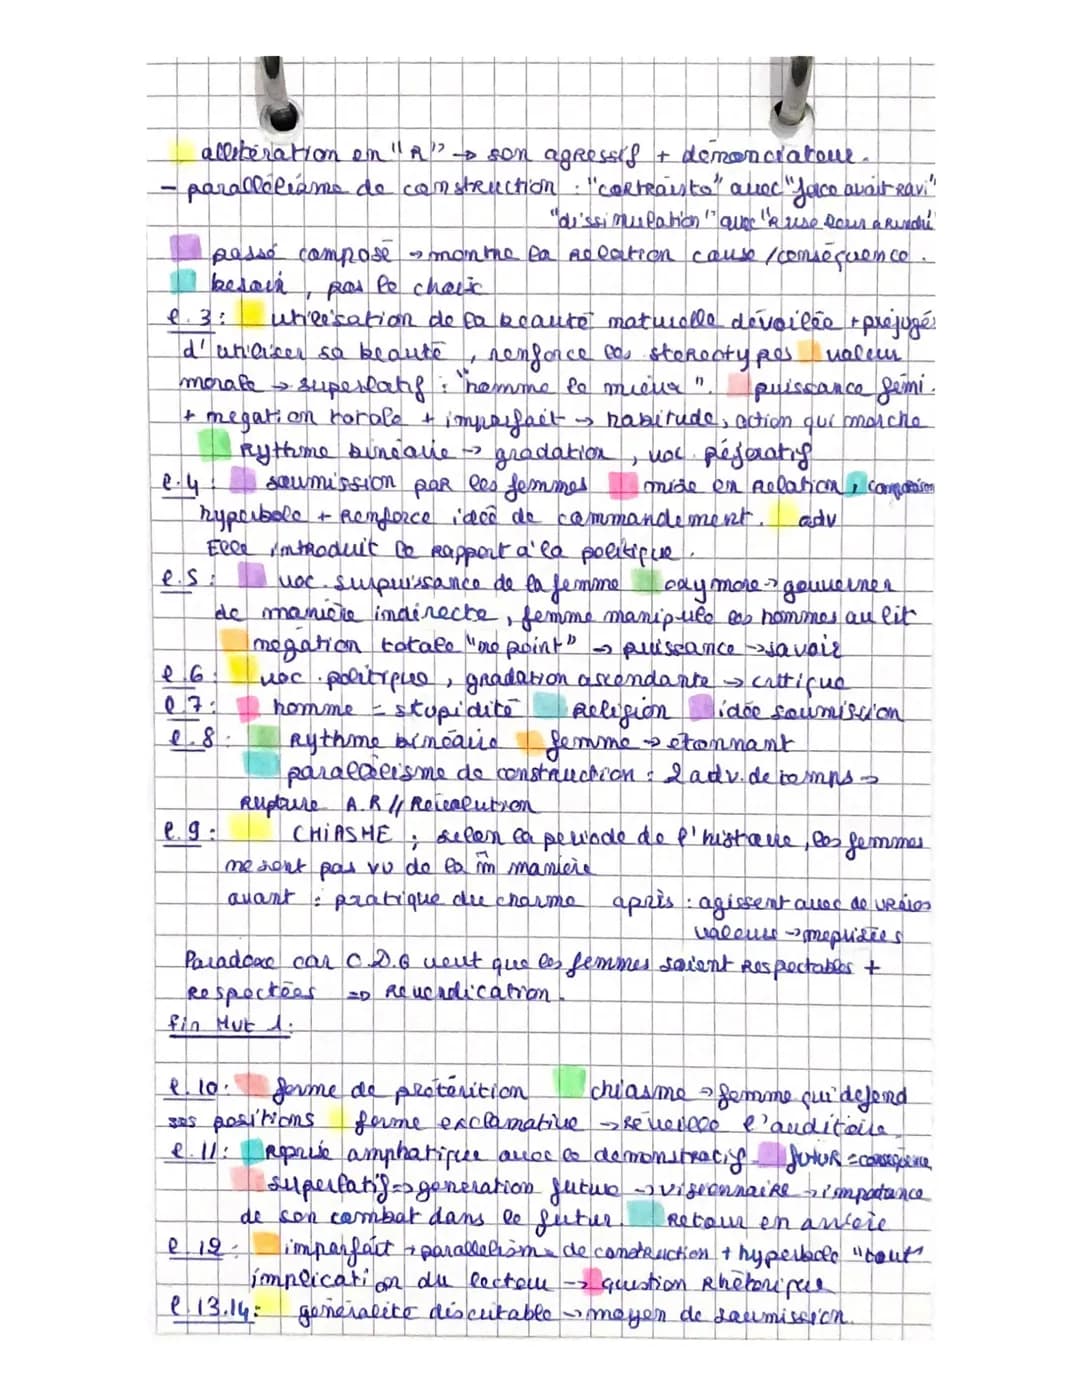 allitération en "R" → son agressif + dénonciateur.
- parallélisme de construction : "contrainte" avec "force avait ravi"
"dissimulation" avec "Ruse leur a rendu"
passé composé → montre la relation cause/conséquence.
besoin, pas le choix
l.3: utilisation de la beauté naturelle dévoilée + préjugés
d'utiliser sa beauté, renforce les stéréotypes valeur
morale → superlatif : "homme le mieux". puissance fémi.
+ négation totale + imparfait → habitude, action qui marche
Rythme binéaire → gradation, voc. péjoratif
l.4: soumission par les femmes mise en relation, comparaison
hyperbole + Renforce idée de commandement. adv
Elle introduit le rapport à la politique.
l.5: voc. surpuissance de la femme oxymore → gouverner
de manière indirecte, femme manipule les hommes au lit
négation totale "ne point" → puissance → savoir
l.6: voc. politique, gradation ascendante → critique
l.7: homme = stupidité Religion idée soumission
l.8: Rythme binéaire femme → étonnant
parallélisme de construction : 2 adv. de temps →
Rupture A.R // Révolution
l.9: CHIASME ; selon la période de l'histoire, les femmes
ne sont pas vu de la m̄ manière
avant : pratique du charme après : agissent avec de vraies
valeurs → méprisées
Paradoxe car O.D.G veut que les femmes soient Respectables +
Respectées => Revendication.
fin Mvt 1:
l.10: forme de prétérition chiasme → femme qui défend
ses positions forme exclamative → Réveille l'auditoire.
l.11: Reprise emphatique avec le démonstratif. futur = conséquence
Superlatif => génération future → visionnaire → importance
de son combat dans le futur. Retour en arrière
l.12: imparfait + parallélisme de construction + hyperbole "tout"
implication du lecteur → question Rhétorique
l.13.14: généralité discutable → moyen de soumission.